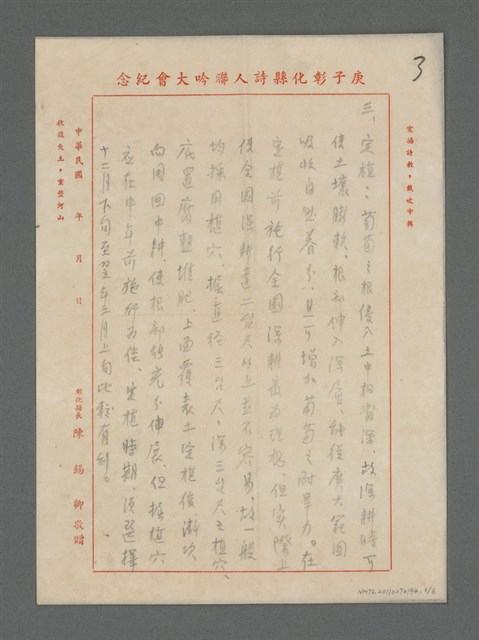 庚子彰化縣詩人聯吟大會紀念
3
宣揚詩教，鼓吹中興
三、定植：葡萄之根侵入土中相當深，故深耕時可
使土壤膨軟，根部伸入深層，能從廣大範圍
吸收自然養分，且可增加葡萄之耐旱力。在
定植前施行全園深耕最為理想，但實際上
使全園深耕達二台尺以上並不容易，故一般
均採用植穴，掘直徑三台尺，深三台尺之植穴、
底置腐熟堆肥，上面覆表土定植後，漸次
向周圍中耕，使根部能充分伸展，但掘植穴
應在中年前施行為佳。定植時期，須選擇
十二月下旬至翌年三月上旬比較有利。
中華民國　年　月　日
彰化縣長　陳錫卿敬贈
收復失土，重整河山